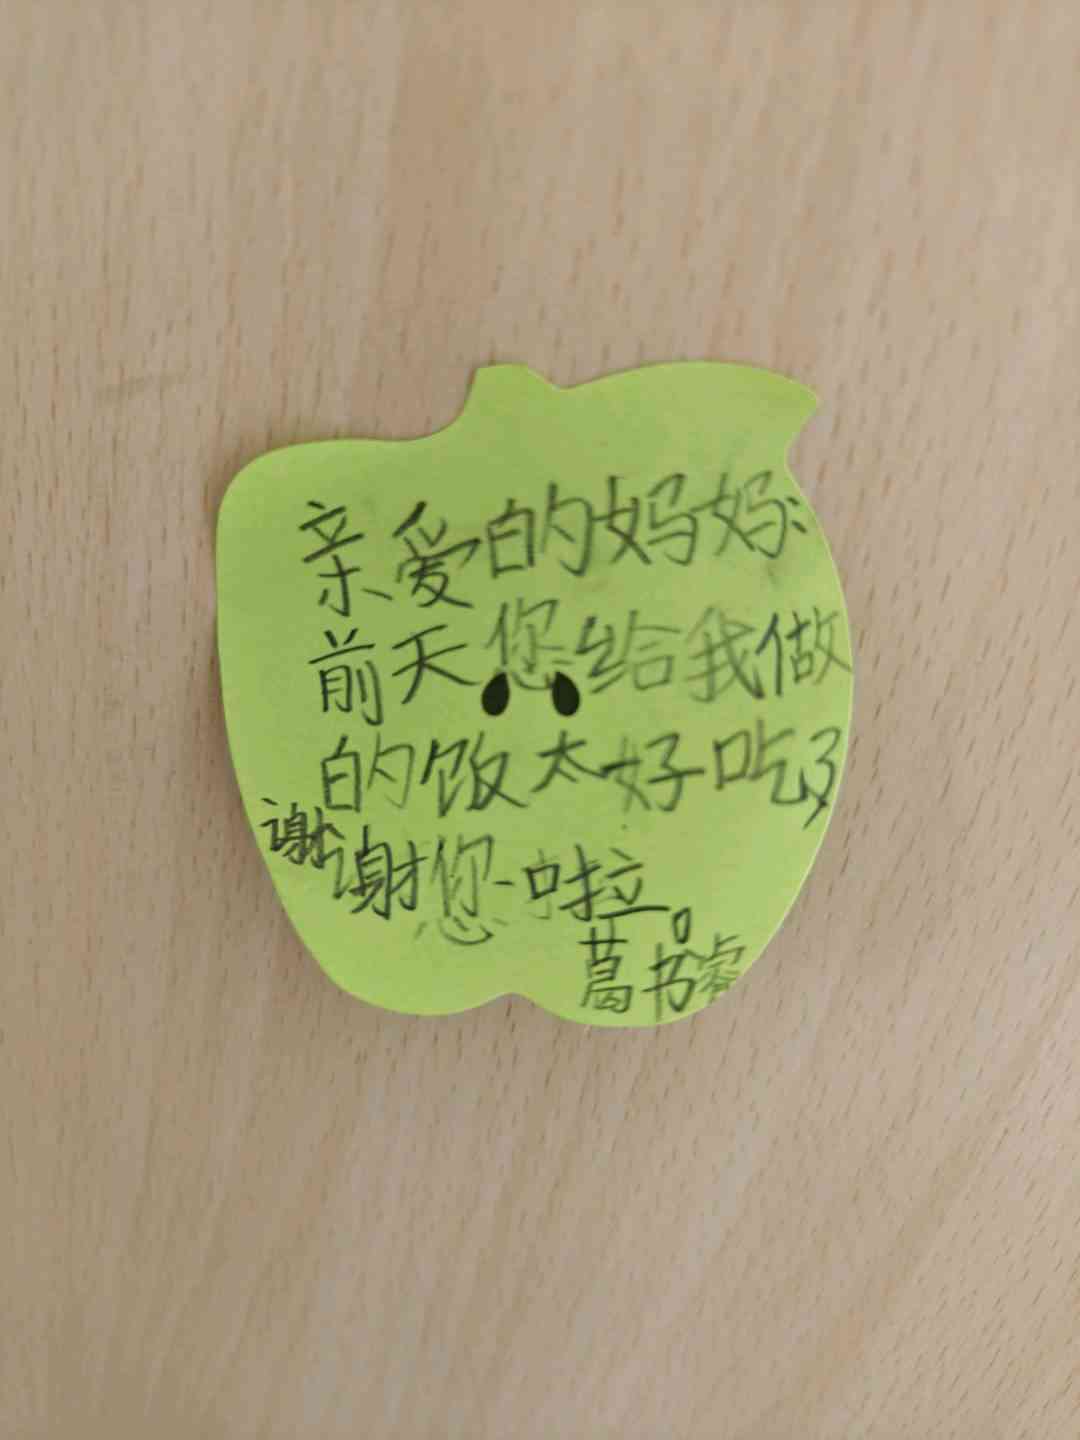 亲爱的妈妈:
前天您给我做
的饭太好吃了
谢谢您啦。
葛书睿